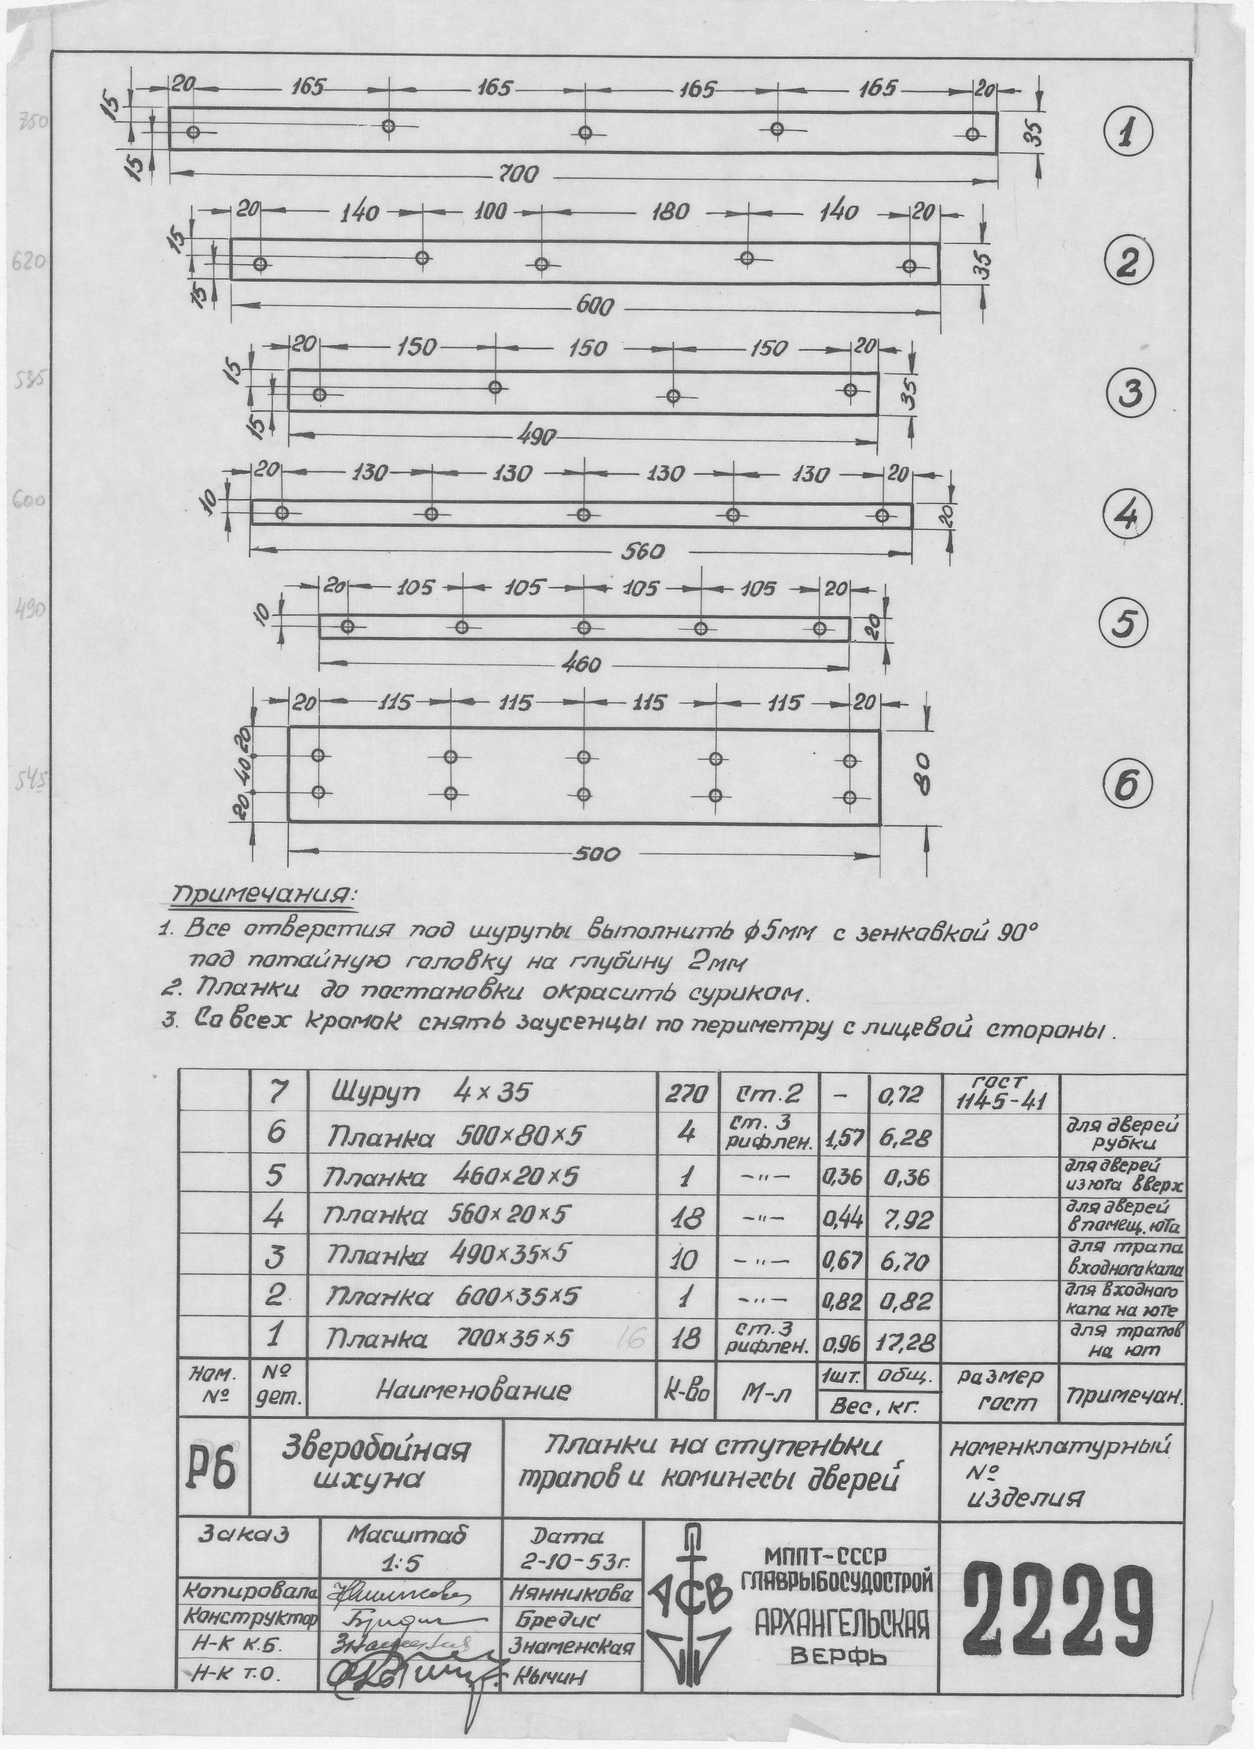 20 165 165 165 165 20
15 15 35
700
1
750
20 140 100 180 140 20
15 15 35
600
2
620
20 150 150 150 20
15 15 35
490
3
535
20 130 130 130 130 20
10 20
560
4
600
20 105 105 105 105 20
10 20
460
5
490
20 115 115 115 115 20
20 40 20 80
500
6
545
Примечания:
1. Все отверстия под шурупы выполнить ϕ5мм с зенковкой 90°
под потайную головку на глубину 2мм
2. Планки до постановки окрасить суриком.
3. Со всех кромок снять заусенцы по периметру с лицевой стороны.
7 Шуруп 4×35 270 Ст.2 – 0,72 гост 1145-41
6 Планка 500×80×5 4 Ст. 3 рифлен. 1,57 6,28 для дверей рубки
5 Планка 460×20×5 1 –"– 0,36 0,36 для дверей из юта вверх
4 Планка 560×20×5 18 –"– 0,44 7,92 для дверей в помещ. юта
3 Планка 490×35×5 10 –"– 0,67 6,70 для трапа входного капа
2 Планка 600×35×5 1 –"– 0,82 0,82 для входного капа на юте
1 Планка 700×35×5 16 18 ст.3 рифлен. 0,96 17,28 для трапов на ют
Ном. № № дет. Наименование К-во М-л 1шт. общ. Вес, кг. размер гост Примечан.
Р6
Зверобойная
шхуна
Планки на ступеньки
трапов и комингсы дверей
номенклатурный
№
изделия
Заказ
Масштаб
1:5
Дата
2-10-53г.
Копировала Нянникова
Конструктор Бредис
Н-к К.Б. Знаменская
Н-к Т.О. Кычин
АСВ
МППТ-СССР
ГЛАВРЫБОСУДОСТРОЙ
АРХАНГЕЛЬСКАЯ
ВЕРФЬ
2229